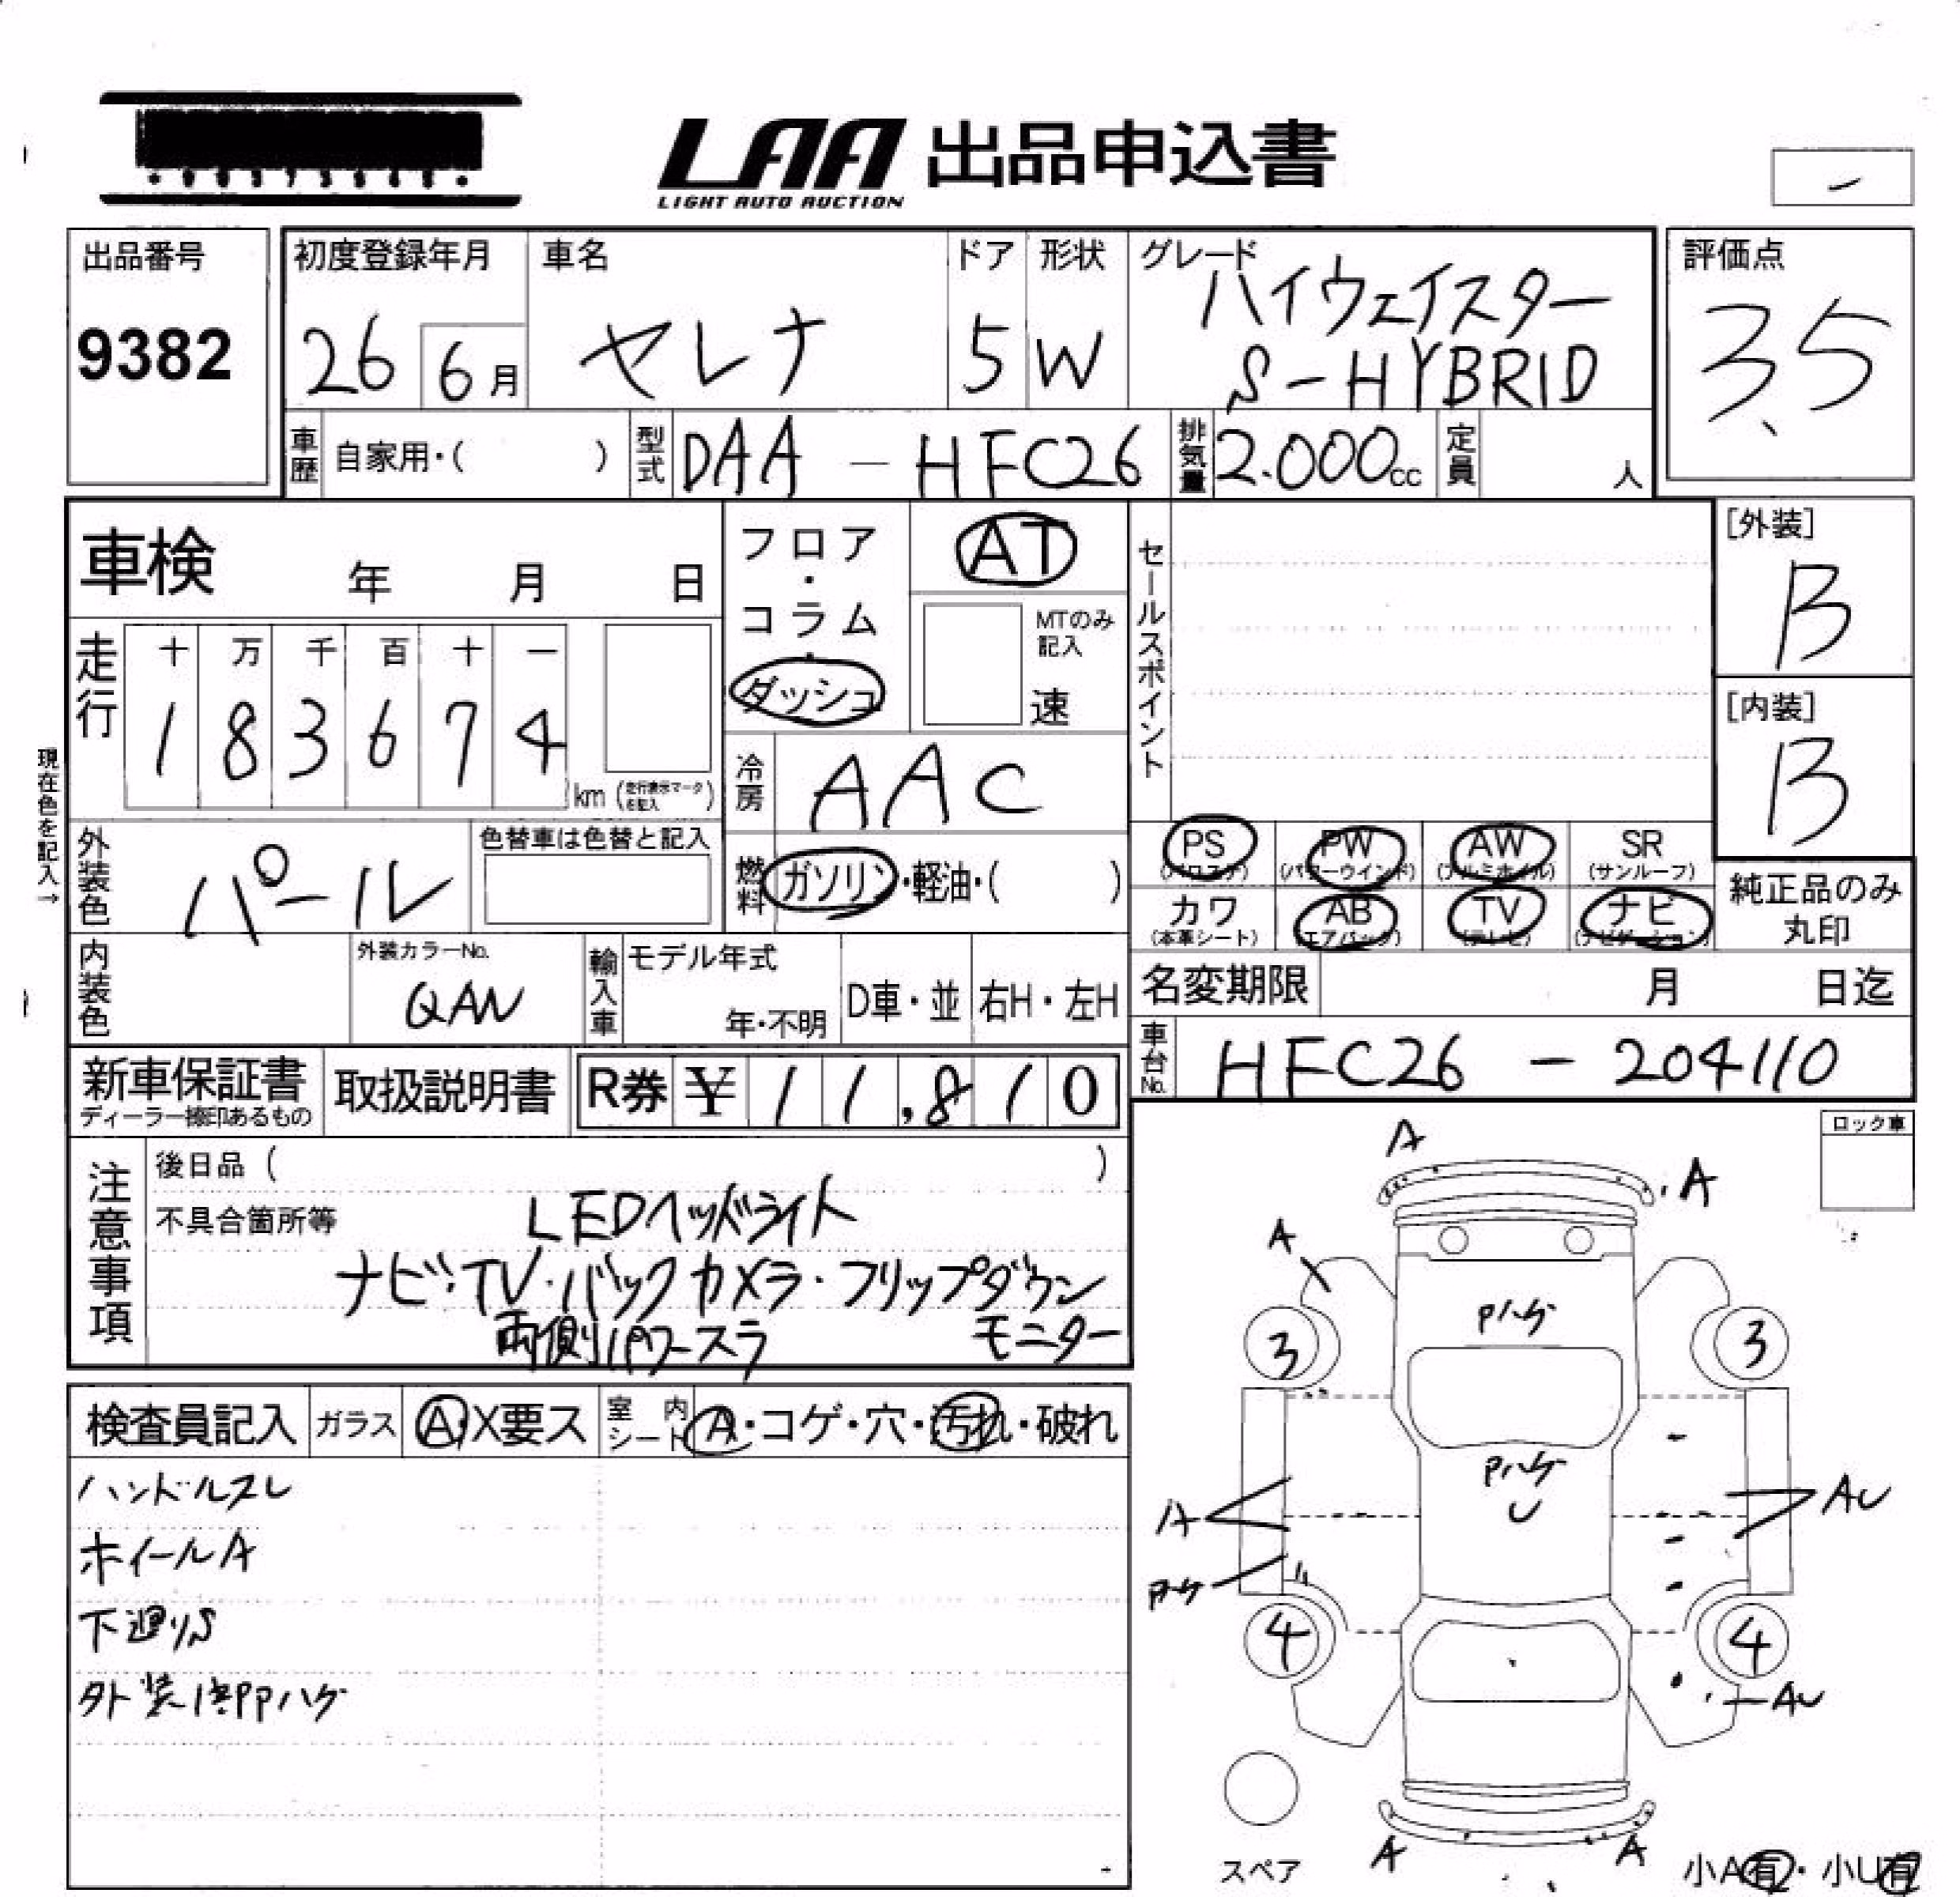 LAA 出品申込書
LIGHT AUTO AUCTION
出品番号
9382
初度登録年月
26 6月
車名
セレナ
ドア
5
形状
W
グレード
ハイウェイスター
S-HYBRID
評価点
3.5
車歴 自家用・( )
型式 DAA-HFC26
排気量 2.000cc
定員 人
車検 年 月 日
フロア・コラム・ダッシュ
AT
MTのみ記入
速
セールスポイント
[外装]
B
[内装]
B
走行
十 万 千 百 十 一
1 8 3 6 7 4
km (走行表示マークを記入)
現在色を記入→
冷房 AAC
外装色 パール
色替車は色替と記入
燃料 ガソリン・軽油・( )
PS (パワステ) PW (パワーウインド) AW (アルミホイル) SR (サンルーフ)
カワ (本革シート) AB (エアバック) TV (テレビ) ナビ (ナビゲーション)
純正品のみ丸印
内装色
外装カラーNo.
QAN
輸入車 モデル年式
年・不明
D車・並
右H・左H
名変期限 月 日迄
車台No. HFC26-204110
新車保証書
ディーラー捺印あるもの
取扱説明書
R券 ¥11,810
注意事項
後日品 ( )
不具合箇所等
LEDヘッドライト
ナビ・TV・バックカメラ・フリップダウン
両側パワースラ モニター
ロック車
検査員記入
ガラス A・X要ス
室内シート A・コゲ・穴・汚れ・破れ
ハンドルスレ
ホイールA
下廻りS
A
A
A
Pハゲ
3 3
Pハゲ
U
A
AU
Pハゲ
4 4
AU
A A
スペア
小A有・小U有